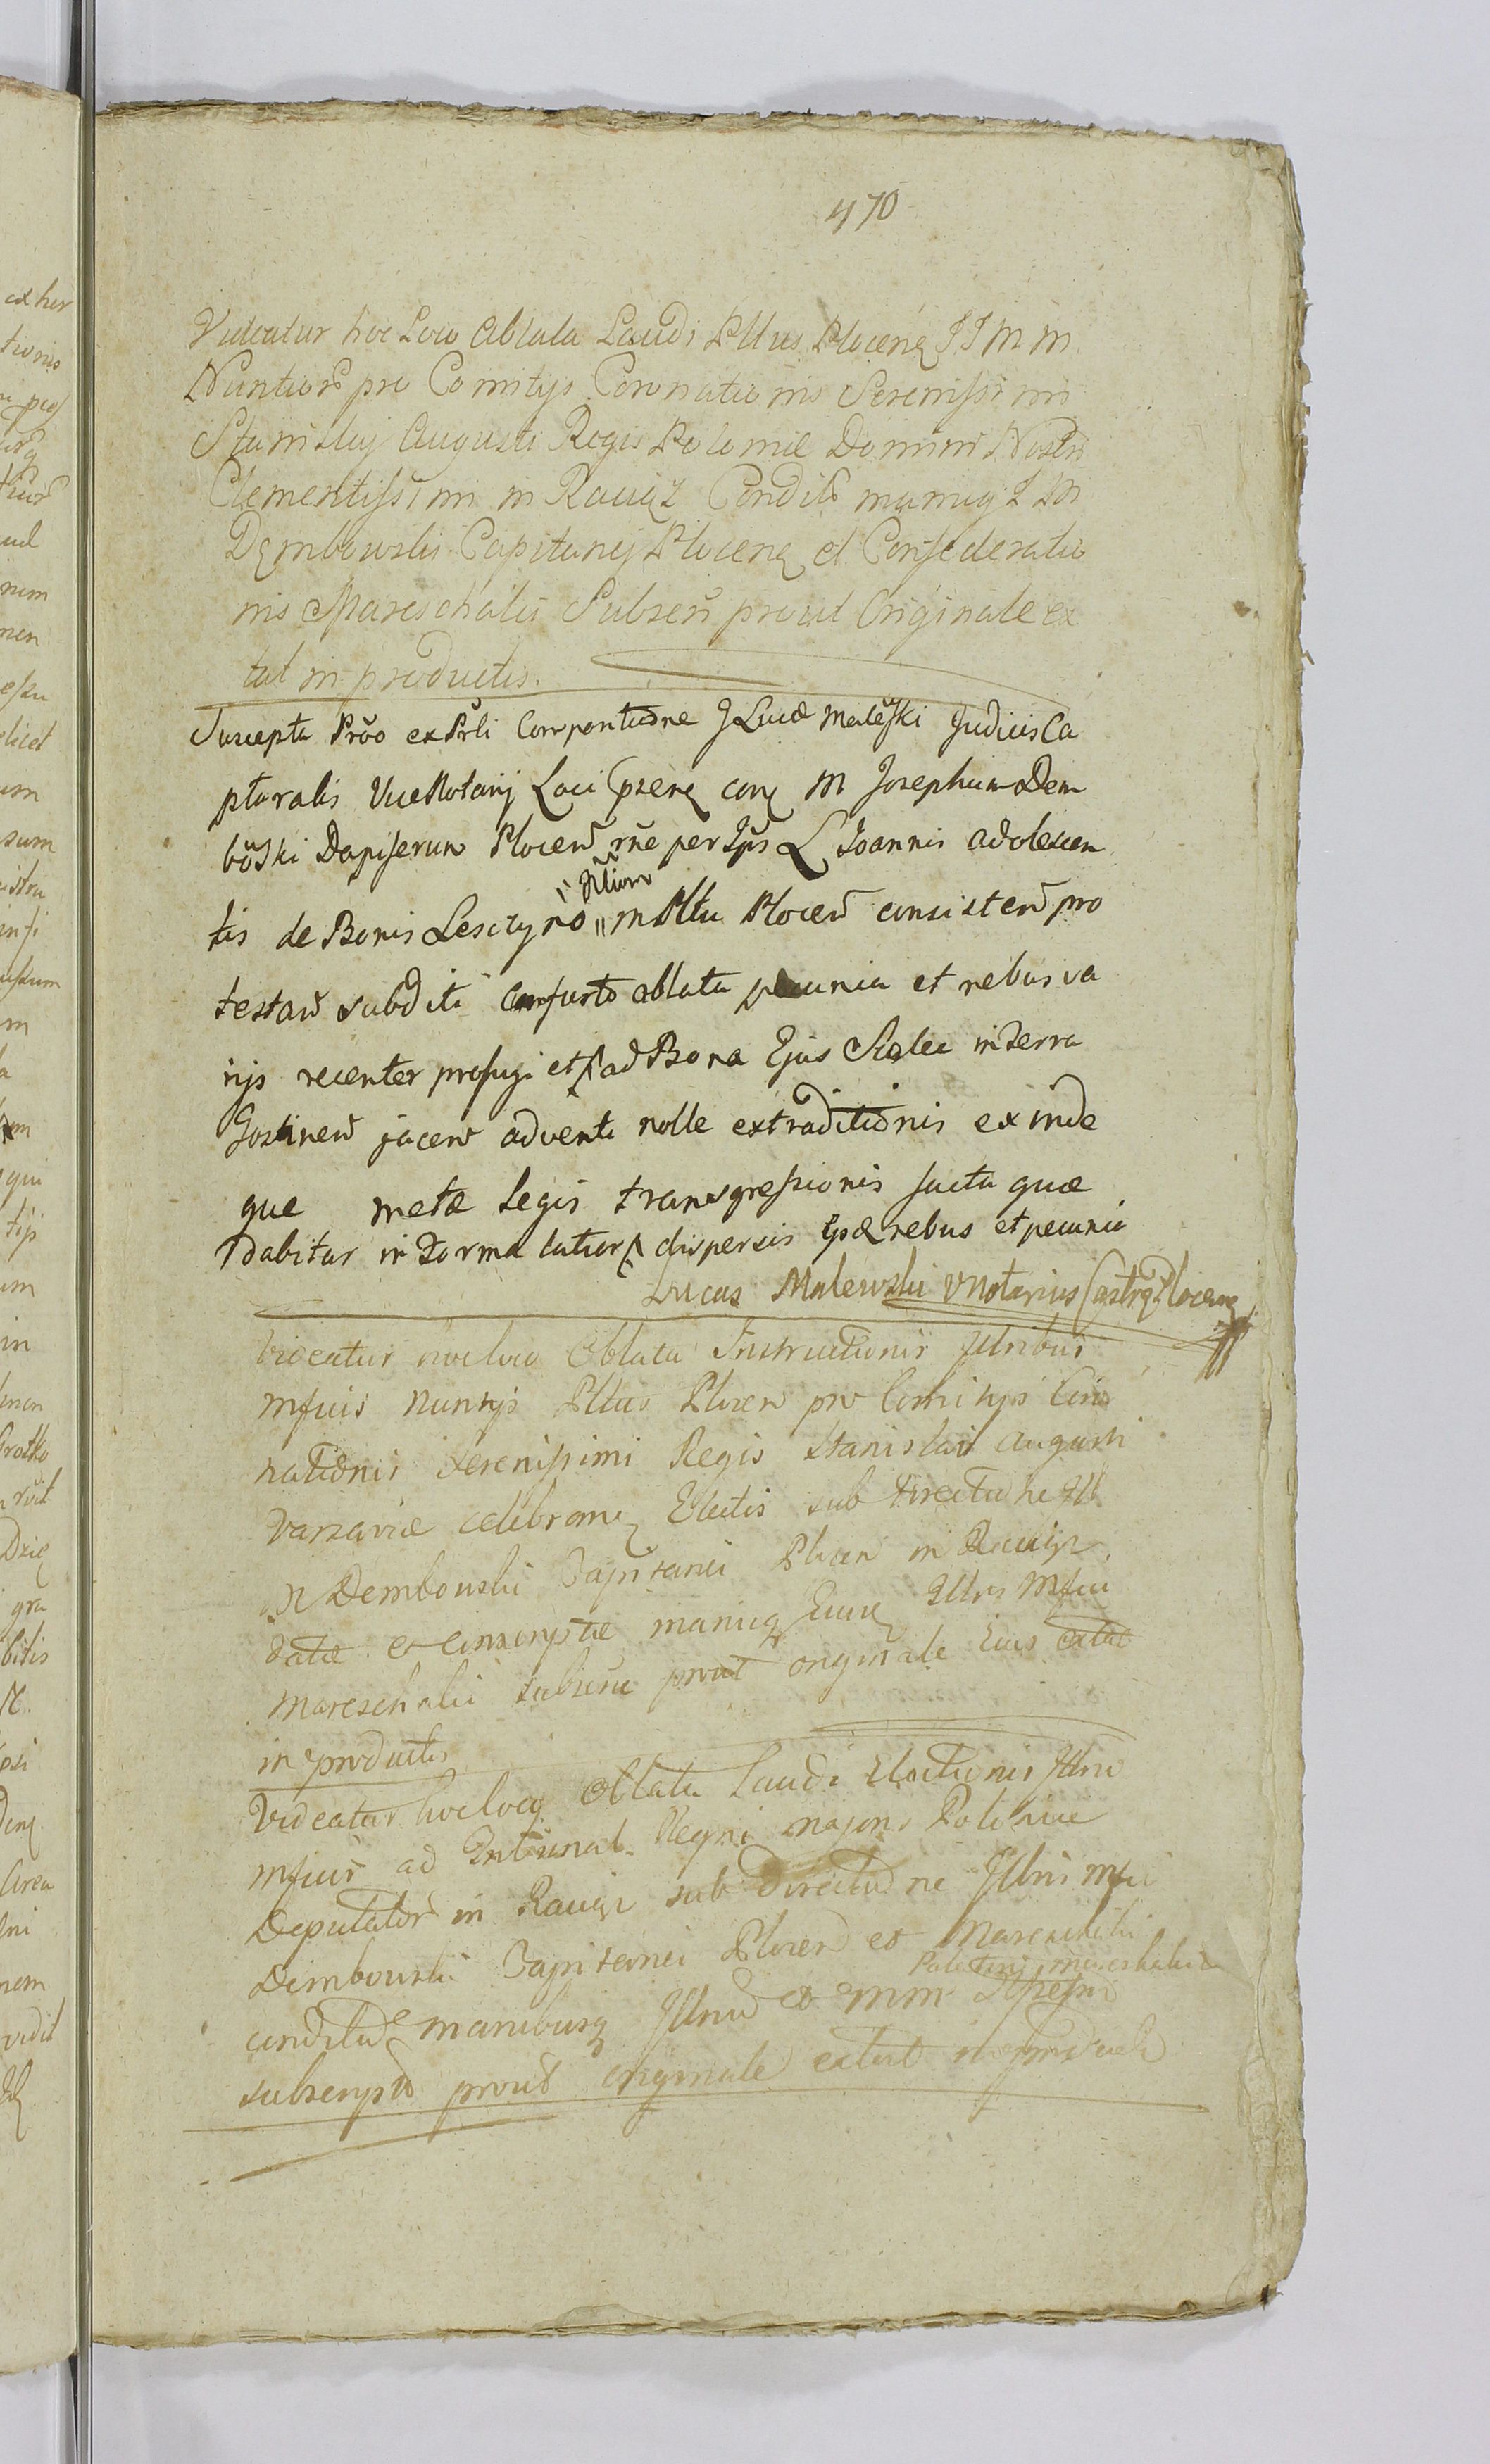 470
Videatur hoc Loco Oblata Laudi Pltus Plocenę I I M M
Nuntiorũ pro Comitijs Coronationis Serenissimi
Stanislaj Augusti Regis Poloniæ Domini Nostri
Clementissimi in Raciąż Conditi manuq̨ I M
Dęmbowski Capitanej Plocenę et Confederatio
nis Mareschalci Subscrĩ prout Originale ex
tat in productis.
Suscepta Prõo ex Prli Comportatione G Lucæ Maleski Judicis Ca
pturalis ViceNotarij Loci Psenę conę M Josephum Dem
bõski Dapiferum Plocen̄ rñe per Ips L Joannis adolescen
tis de Bonis Lesczyno in Pltu Plocen̄ consisten̄ pro
testan̄ subditi cum furto ablata pecunia et rebus va
rijs recenter profugi et ad Bona Ejus Scalec in Terra
Gostinen̄ jacen̄ adventi nolle extraditionis exinde
que metæ legis transgressionis facta quæ
dabitur in Forma latiori dispersis Ipsæ rebus et pecunia
Lucas Malewski VNotarius Castrę Plocenę
Videatur hocloco Oblata Instructionis Illribus
Mfcis Nuntijs Pltus Plocen pro Comitijs Coro
nationis Serenissimi Regis Stanislai Augusti
Varsaviæ celebranę Electis sub Directione Ill
M Dembowski Capitanei Plocen in Raciąż
datæ et conscriptæ manuq̨ Ejus Illris Mfci
Mareschalci subscrĩ prout originale Eius extat
in productis
Videatur hocloco Oblata Laudi Electionis Illriũ
Mfcorũ ad Tribunal Regni majoris Poloniæ
Deputatorũ in Raciąż sub Directione Illris Mfci
Dembowski Capitanei Plocen et Mareschalci
conditi manibusq̨ Illriũ et MM
subscripti prout originale extat in productis